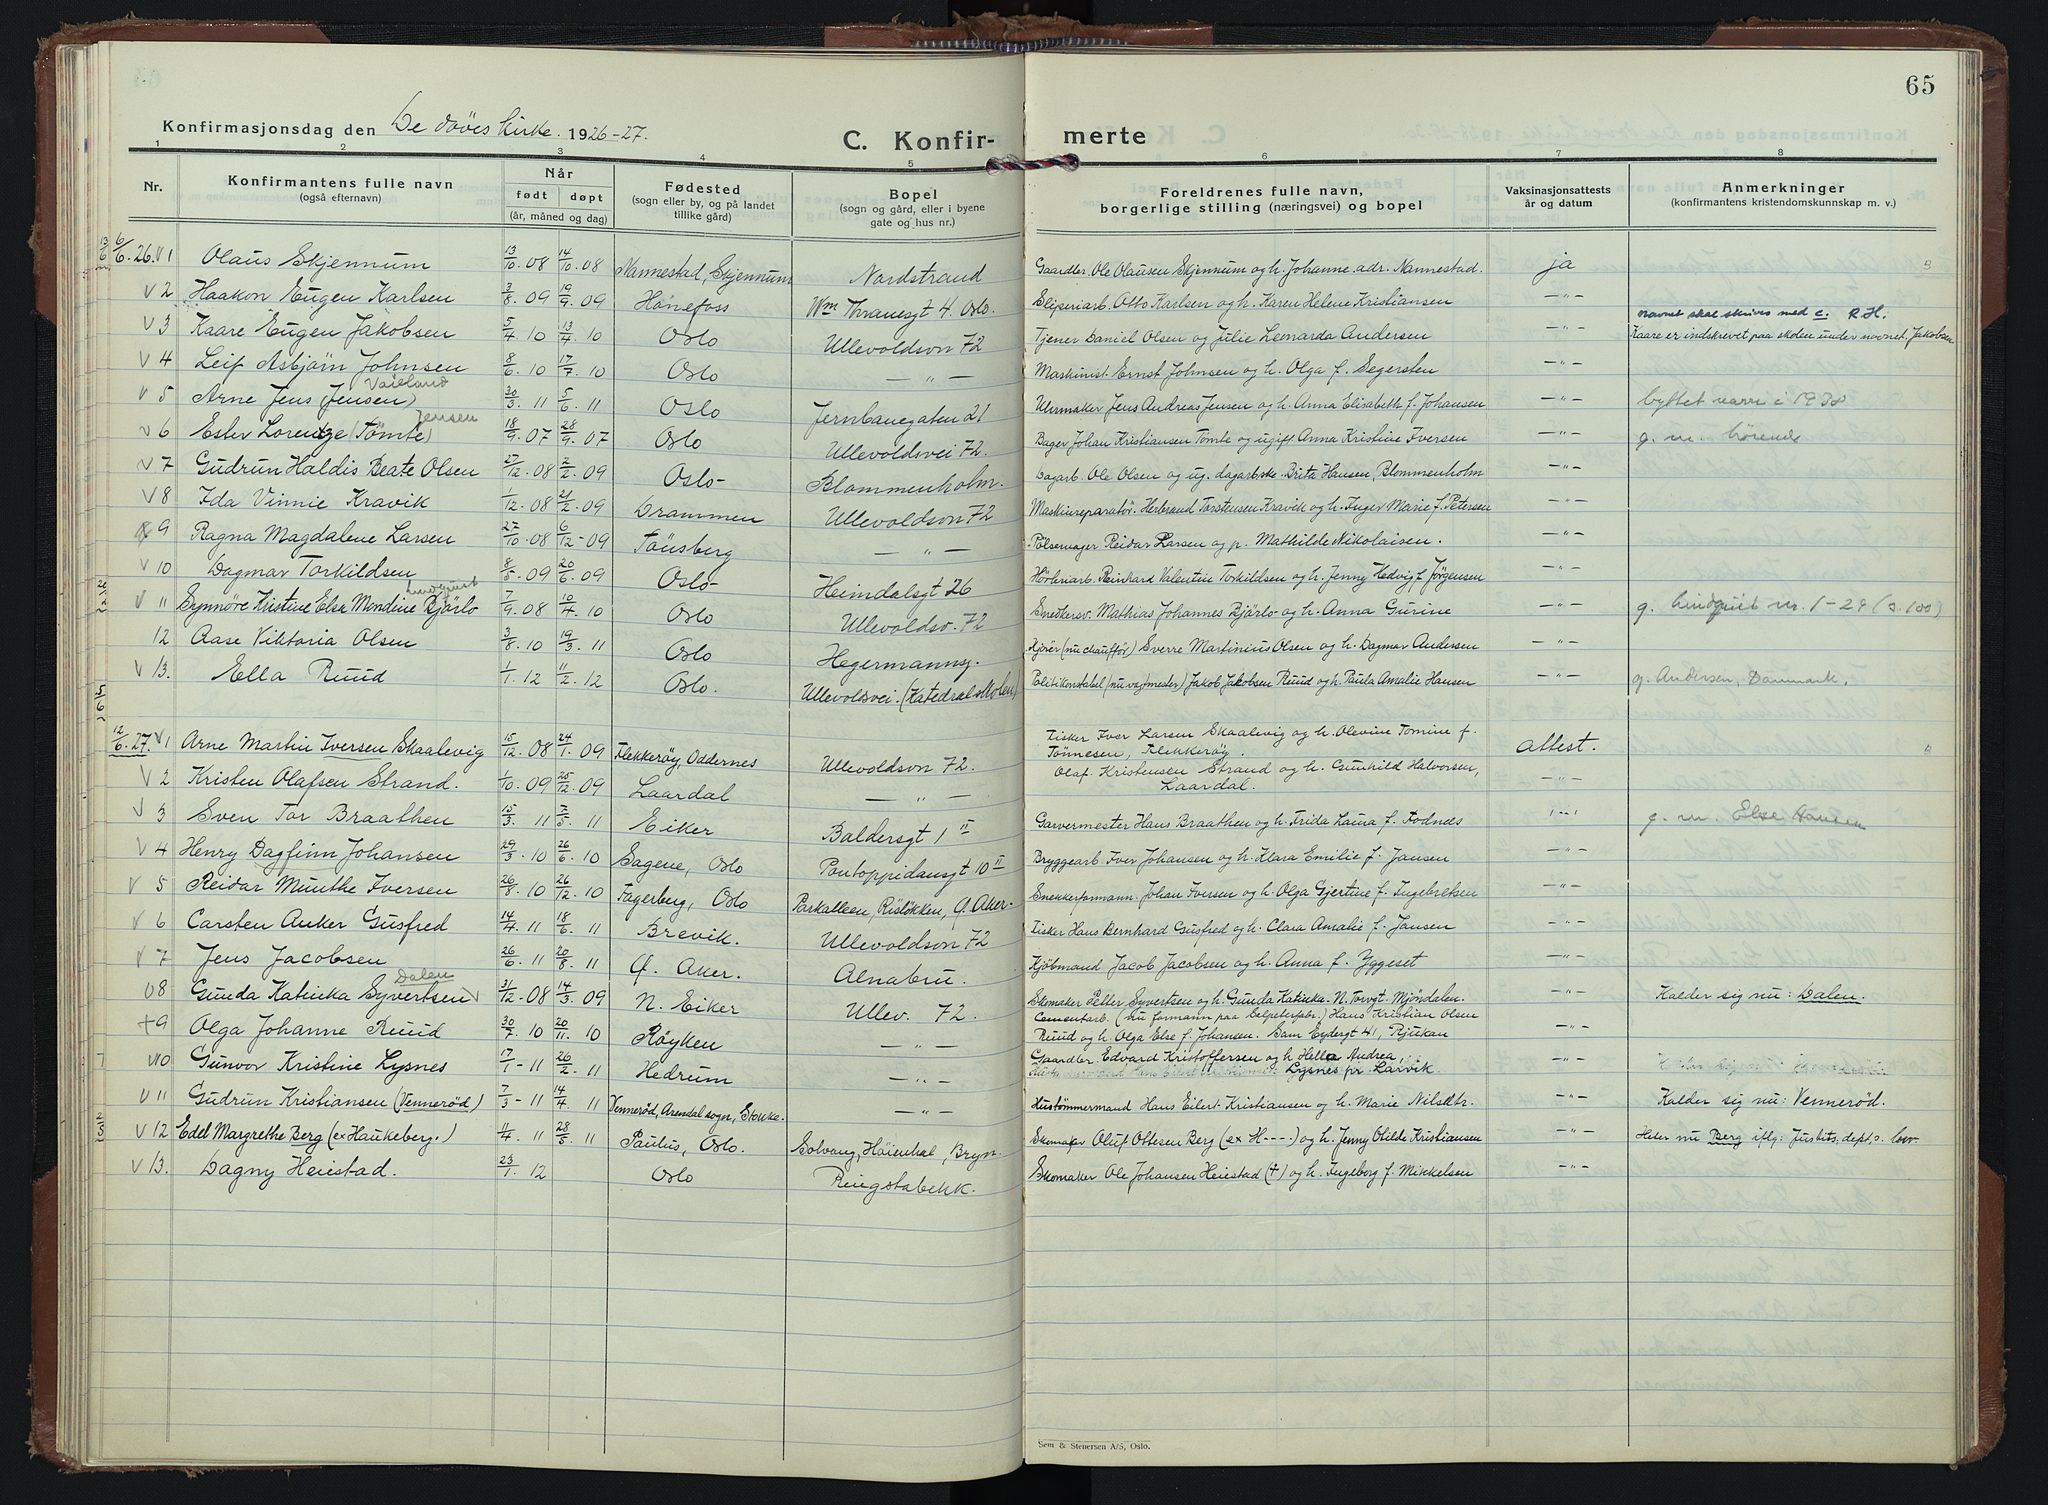 65
Konfirmasjonsdag den De døves kirke. 1926-27.
C. Konfir- merte
1 2 3 4 5 6 7 8
Nr.
Konfirmantens fulle navn (også efternavn)
Når født døpt (år, måned og dag)
Fødested (sogn eller by, og på landet tillike gård)
Bopel (sogn og gård, eller i byene gate og hus nr.)
Foreldrenes fulle navn, borgerlige stilling (næringsvei) og bopel
Vaksinasjonsattests år og datum
Anmerkninger (konfirmantens kristendomskunnskap m. v.)
13/6 6/6. 26. V 1 Olaus Skjennum 13/10. 08 14/10. 08 Nannestad, Skjennum Nordstrand Gaardbr. Ole Olausen Skjennum og h. Johanne. adr. Nannestad. ja
V 2 Haakon Eugen Karlsen 3/8. 09 19/9. 09 Hönefoss Wm Thranesgt 4. Oslo. Sliperiarb. Otto Karlsen og h. Karen Helene Kristiansen -"-
navnet skal skrives med c. R.H.
V 3 Kaare Eugen Jakobsen 5/4. 10 13/4. 10 Oslo Ullevoldsvn 72 Tjener Daniel Olsen og Julie Leonarda Andersen -"- Kaare er indskrevet paa skolen under navnet Jakobsen
V 4 Leif Asbjörn Johnsen 8/6. 10 17/7. 10 Oslo -"- Maskinist. Ernst Johnsen og h. Olga f. Segersten -"-
Vaieland
V 5 Arne Jens (Jensen) 30/3. 11 5/6. 11 Oslo Jernbanegaten 21 Uhrmaker Jens Andreas Jensen og h. Anna Elisabeth f. Johansen -"- byttet navn i 1938
Jensen
V 6 Ester Lorentze (Tömte) 18/9. 07 28/9. 07 Oslo Ullevoldsvei 72. Bager Johan Kristiansen Tomte og ugift Anna Kristine Iversen -"- g. m. hørende
V 7 Gudrun Haldis Beate Olsen 27/12. 08 2/2. 09 Oslo- Blommenholm. Dagarb. Ole Olsen og ug. dagarbske Brita Hansen, Blommenholm -"-
V 8 Ida Vinnie Kravik 1/12. 08 21/2. 09 Drammen Ullevoldsvn 72 Maskinreparatör. Herbrand Torstensen Kravik og h. Inger Marie f. Petersen -"-
9 Ragna Magdalene Larsen 27/10. 08 6/12 - 09 Tönsberg -"- Pölsemager Reidar Larsen og p. Mathilde Nikolaisen. -"-
V 10 Dagmar Torkildsen 8/5. 09 20/6. 09 Oslo- Heimdalsgt 26 Reinhard Valentin Torkildsen og h. Jenny Hedvig f. Jørgensen -"-
Lindquist
V 11 Synnöve Kristine Elsa Mondine Bjärlo 7/9. 08 10/4. 10 Oslo Ullevoldsv. 72 Snedkersv. Mathias Johannes Bjärlo og h. Anna Gurine -"- g. Lindquist nr. 1-29 (s. 100)
12 Aase Viktoria Olsen 3/8. 10 19/3. 11 Oslo Hegermannsg. Kjörer (nu chauffør) Sverre Martinius Olsen og h. Dagmar Andersen -"-
V 13. Ella Ruud 1/1. 12 11/2. 12 Oslo. Ullevoldsvei. (Katedralskolen) Politikonstabel (nu vagtmester) Jakob Jakobsen Ruud og h. Paula Amalie Hansen -"- g. Andersen, Danmark.
12/6. 27. V 1 Arne Martin Iversen Skaalevig 15/12. 08 24/1. 09 Flekkeröy, Oddernes Ullevoldsvn 72. Fisker Iver Larsen Skaalevig og h. Olevine Tomine f. Tönnesen, Flekkeröy. attest.
V 2 Kristen Olafsen Strand. 1/10. 09 25/12. 09 Laardal -"- Olaf Kristensen Strand og h. Gunhild Halvorsen, Laardal. -"-
V 3 Sven Tor Braathen 15/3. 11 7/5. 11 Eiker Baldersgt 1 II Garvermester Hans Braathen og h. Frida Laura f. Fodnes -"- g. m. Else Hansen
V 4 Henry Dagfinn Johansen 29/3. 10 26/6. 10 Sagene, Oslo Pontoppidansgt 10 II Bryggearb. Iver Johansen og h. Klara Emilie f. Jansen -"-
V 5 Reidar Munthe Iversen 26/8. 10 26/12. 10 Fagerborg, Oslo Parkalleen, Rislökken, Ö. Aker. Snekkerformann. Johan Iversen og h. Olga Gjertine f. Ingebretsen -"-
V 6 Carsten Anker Gusfred 14/4. 11 18/6. 11 Brevik. Ullevoldsvn 72 Fisker Hans Bernhard Gusfred og h. Clara Amalie f. Jansen -"-
V 7 Jens Jacobsen 26/6. 11 20/8. 11 Ö. Aker. Alnabru. Kjöbmand Jacob Jacobsen og h. Anna f. Yggeset -"-
Dalen
8 Gunda Katinka Syvertsen 31/12. 08 14/3. 09 N. Eiker Ullev. 72. Skomaker Petter Syvertsen og h. Gunda Katinka. N. Torvgt. Mjöndalen. -"- Kalder sig nu: Dalen.
+9 Olga Johanne Ruud 30/7. 10 20/11. 10 Røyken -"- Cementarb. (nu formann paa Salpeterfabr.) Hans Kristian Olsen Ruud og h. Olga Else f. Johansen. Sam Eydesgt 41, Rjukan -"-
V 10 Gunvor Kristine Lysnes 17/1 - 11 26/2. 11 Hedrum -"- Gaardbr. Edvard Kristoffersen og h Hella Andrea, Lysnes pr. Larvik. -"-
V 11 Gudrun Kristiansen (Vennerød) 7/3 - 11 14/4. 11 Vennerød, Arendal sogn, Stokke. -"- Hustömmermand Hans Eilert Kristiansen og h. Marie Nilsdtr. -"- Kalder sig nu: Vennerød.
V 12 Edel Margrethe Berg (ex Haukeberg.) 11/4. 11 28/5. 11 Paulus, Oslo. Solvang, Höienhal, Bryn. Skomaker Oluf Ottesen Berg (ex H----) og h. Jenny Otilde Kristiansen -"- Heter nu Berg iflg. Justits. dept.s. lov-
V 13. Dagny Heiestad. 23/1. 12 Oslo Ringstabekk. Skomaker Ole Johansen Heiestad (+) og h. Ingeborg f. Mikkelsen -"-
Sem & Stenersen A/S, Oslo.